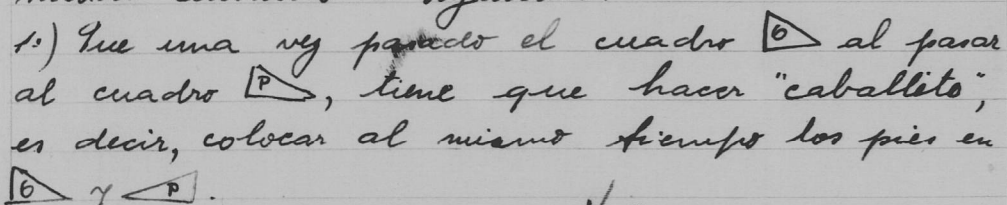 1º) Que una vez pasado el cuadro 6 al pasar
al cuadro P, tiene que hacer "caballito",
es decir, colocar al mismo tiempo los pies en
6 y P.